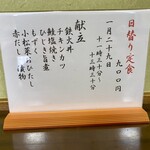 日替り定食
九〇〇円
一月二十九日
十一時三十分～
十三時三十分
献立
鉄火丼
チキンカツ
鮭塩焼き
ひじき旨煮
もずく
小松菜おひたし
赤だし
漬物